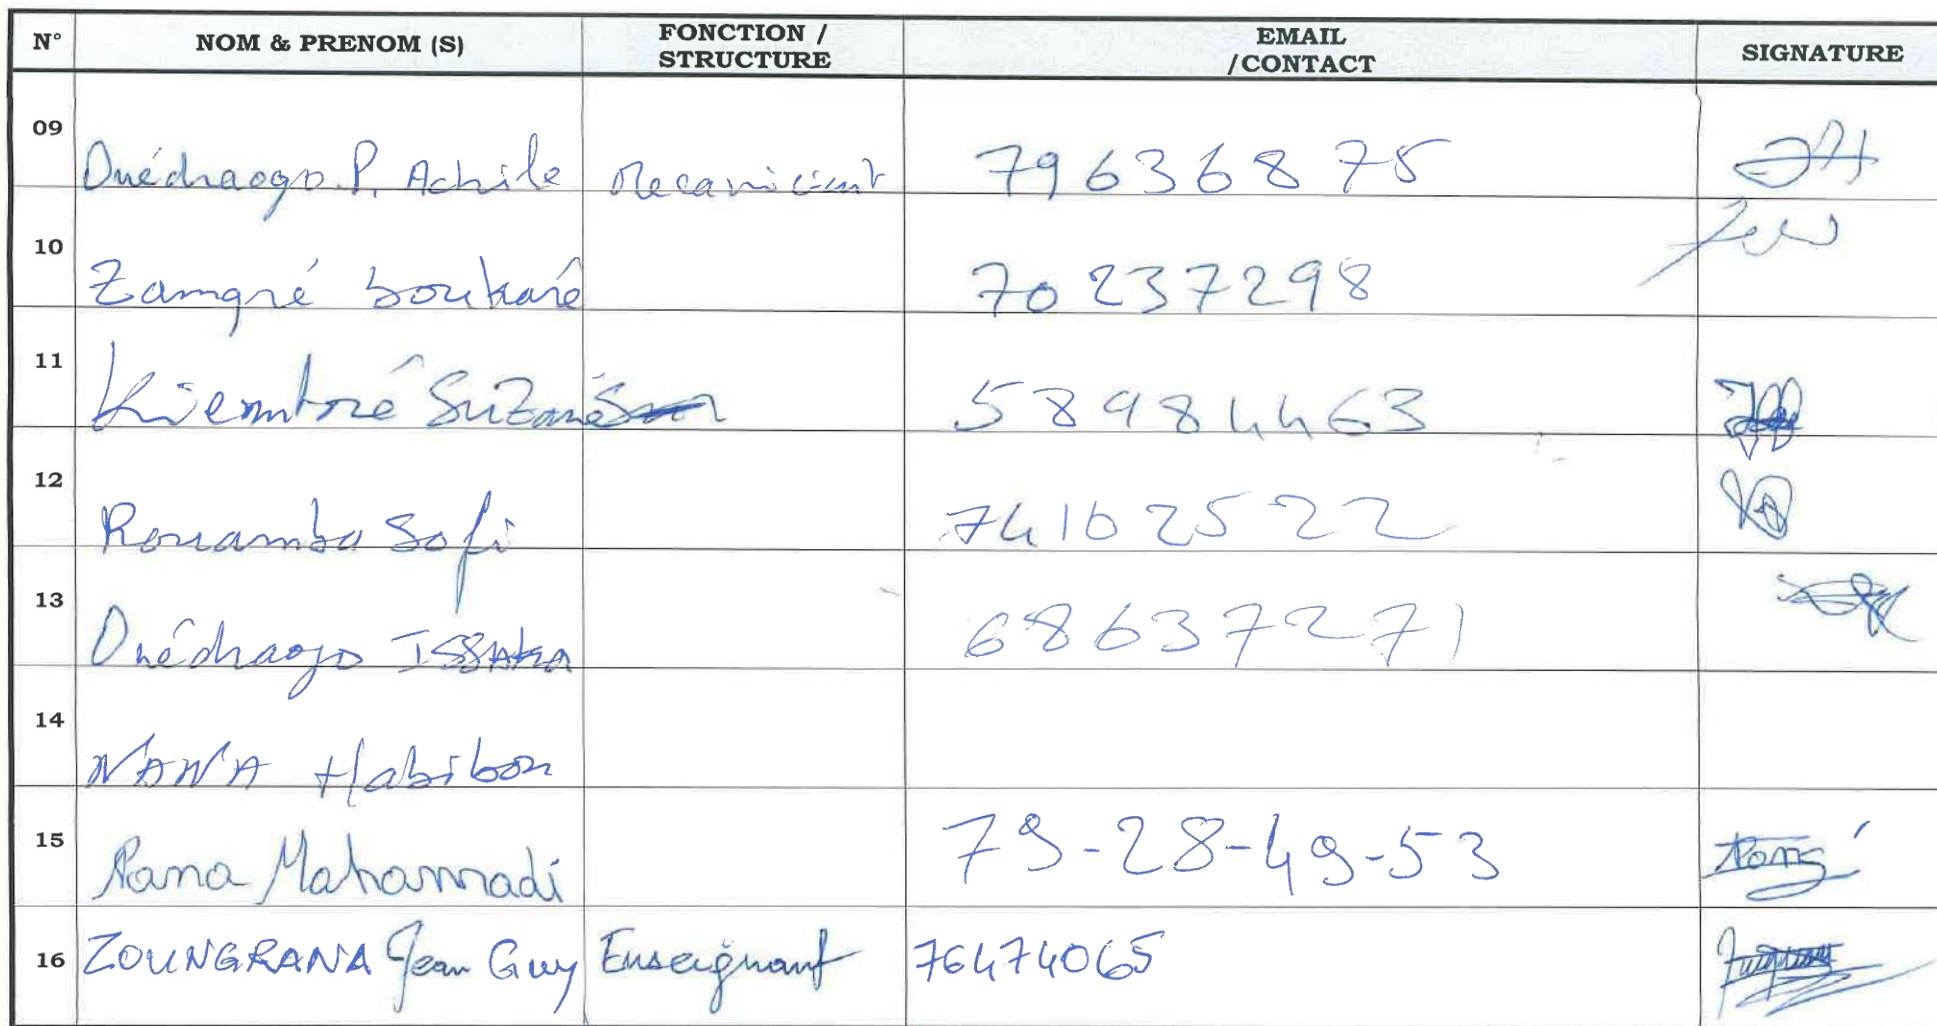 N° NOM & PRENOM (S) FONCTION / STRUCTURE EMAIL /CONTACT SIGNATURE
09 Ouédraogo P. Achile Mecanicient 79636875
10 Zamgré boukaré 70237298
11 Kiemtoré Suzane 58984463
12 Rouamba Sofi 74102522
13 Ouédraogo ISSAKA 68637271
14 NANA Habibou
15 Rana Mahamadi 79-28-49-53
16 ZOUNGRANA Jean Guy Enseignant 76474065